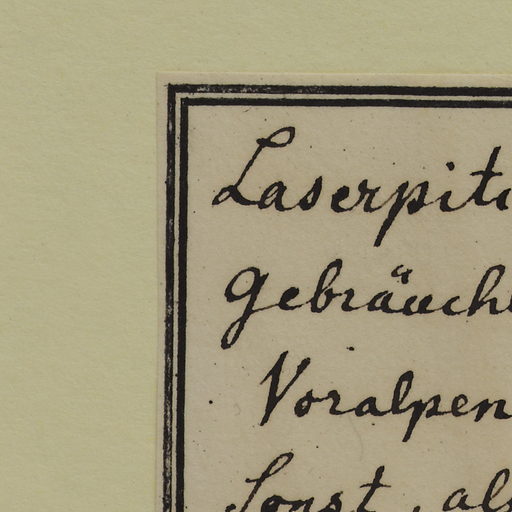 Laserpiti
Gebräuch
Voralpen
Sonst, al